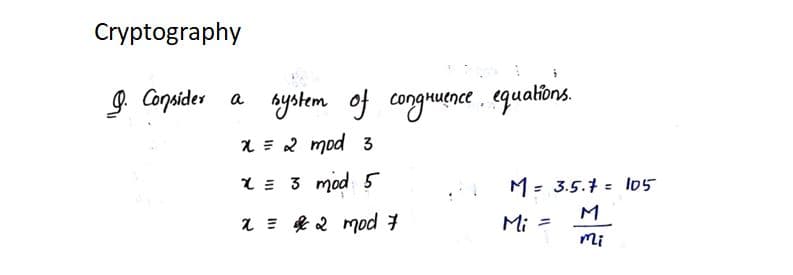 Cryptography
Q. Consider a system of congruence equations.
x ≡ 2 mod 3
x ≡ 3 mod 5 M = 3.5.7 = 105
x ≡ 2 mod 7 Mi = M/mi